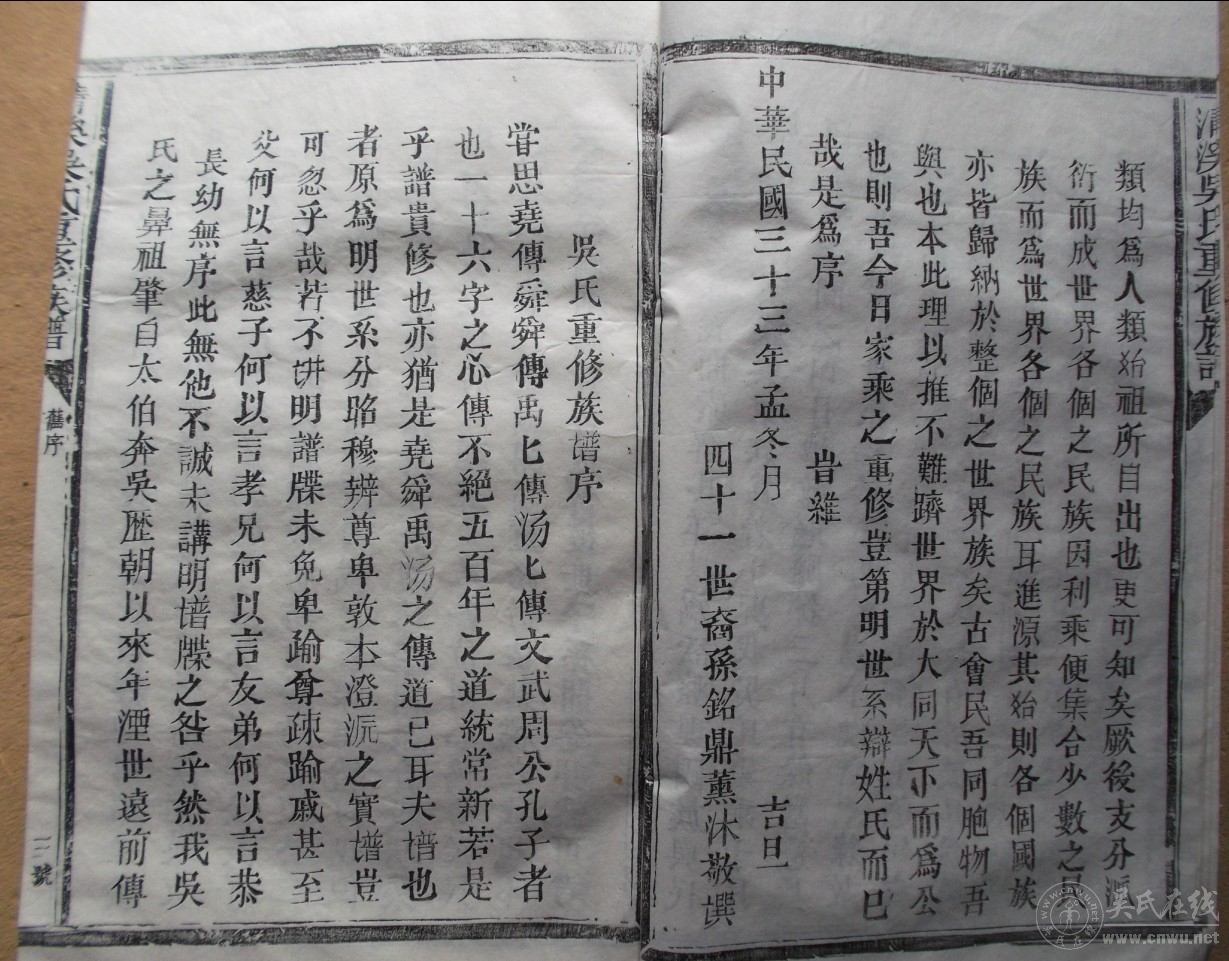 清溪吳氏重修族譜
類均爲人類始祖所自出也更可知矣厥後支分派
衍而成世界各個之民族因利乘便集合少數之民
族而爲世界各個之民族耳進源其始則各個國族
亦皆歸納於整個之世界族矣古會民吾同胞物吾
與也本此理以推不難躋世界於大同天下而爲公
也則吾今日家乘之重修豈第明世系辯姓氏而已
哉是爲序 旹維
中華民國三十三年孟冬月 吉旦
四十一世裔孫銘鼎薰沐敬撰
吳氏重修族譜序
甞思堯傳舜舜傳禹匕傳汤匕傳文武周公孔子者
也一十六字之心傳不絕五百年之道統常新若是
乎譜貴修也亦猶是堯舜禹汤之傳道已耳夫譜也
者原爲明世系分昭穆辨尊卑敦本澄沠之實譜豈
可忽乎哉若不讲明譜牒未免卑踰尊疎踰戚甚至
父何以言慈子何以言孝兄何以言友弟何以言恭
長幼無序此無他不誠未講明譜牒之咎乎然我吳
氏之鼻祖肇自太伯奔吳歷朝以來年湮世遠前傳
清溪吳氏重修族譜
舊序
三號
吴氏在线
www.cnwu.net